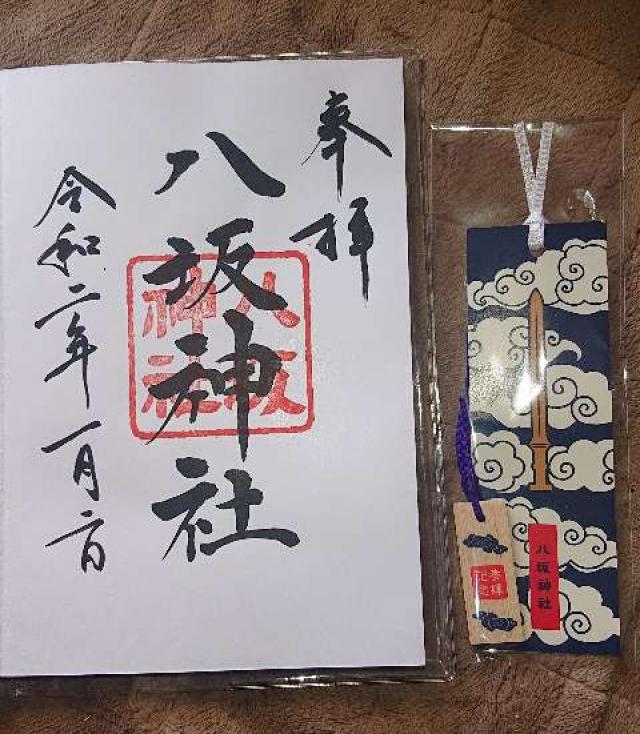 奉拝
八坂神社
八坂
神社
令和二年一月二日
八坂神社